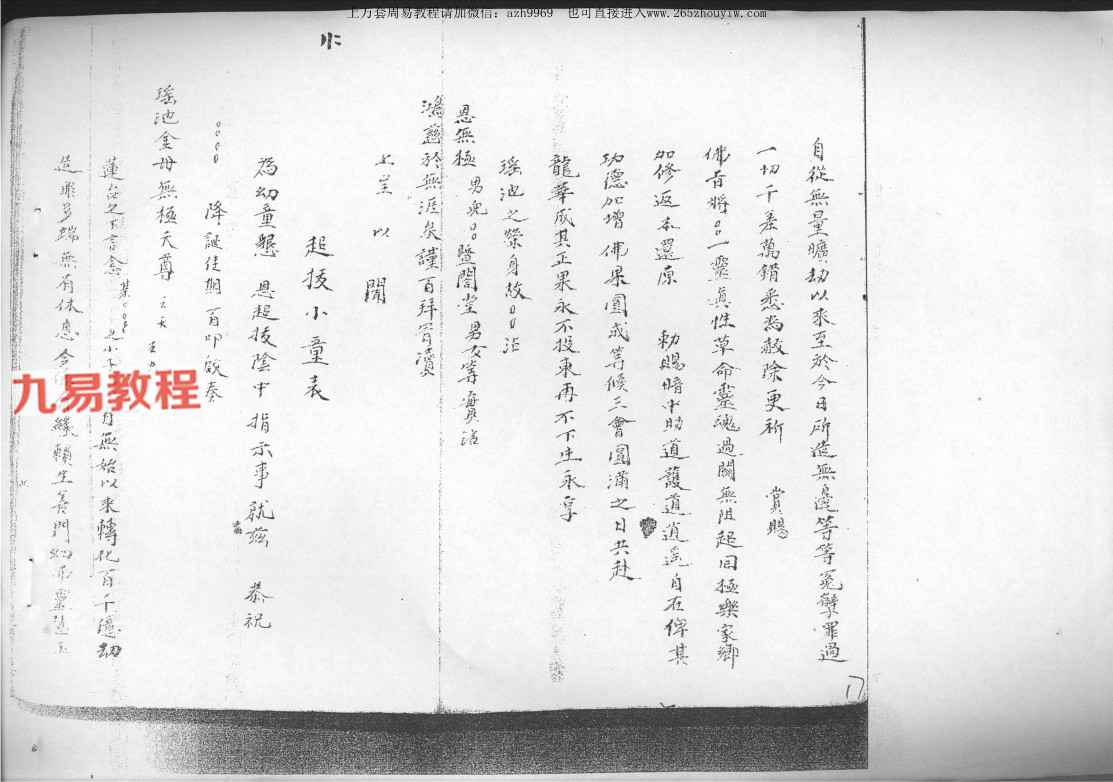 上万套周易教程请加微信：azh9969 也可直接进入www.265zhouyiw.com
自從無量曠劫以來至於今日所造無邊等等冤孽罪過
一切千差萬錯悉為赦除更祈 賞賜
佛旨將○○一靈真性草命靈魂過關無阻起回極樂家鄉
加修返本還原 勅賜暗中助道護道逍遥自在俾其
功德加增佛果圓成等候三會圓滿之日共赴
龍華成其正果永不投東再不下生永享
瑶池之榮身故○○沾
恩無極 男兒○○暨閤堂男女等實沾
鴻慈於無涯矣謹百拜冒瀆
上呈以 聞
超拔小童表
為幼童懇 恩超拔陰中指示事就兹 恭祝
○○○○ 降誕佳期百叩啟奏
瑶池金母無極天尊
蓮台之下言念 某○○ 無始以來轉化百千億劫
造罪多端無有休息今 賴生善門幼
17
九易教程